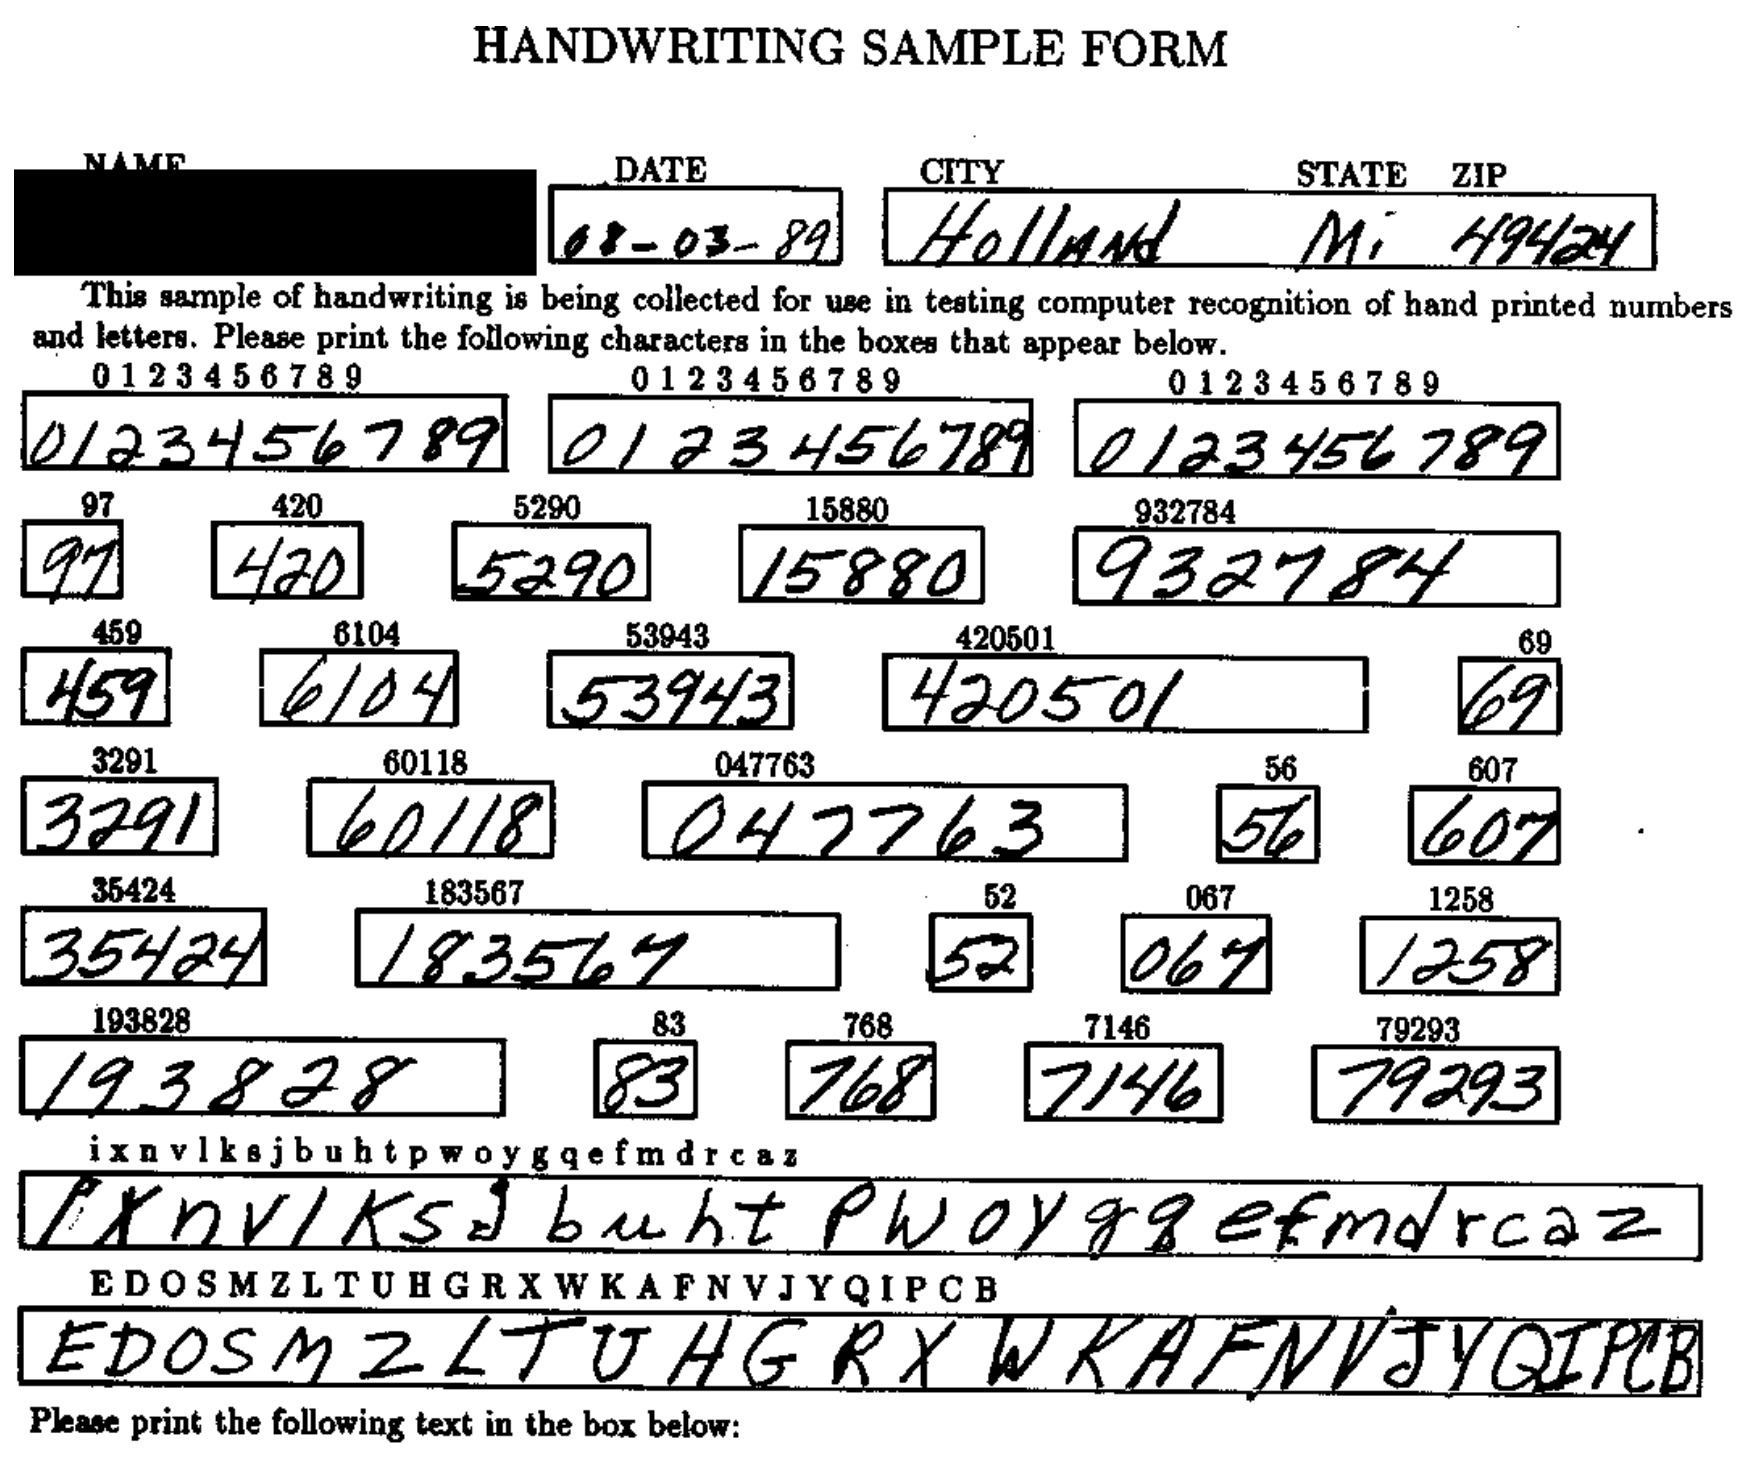 HANDWRITING SAMPLE FORM
NAME DATE CITY STATE ZIP
08-03-89 Holland Mi 49424
This sample of handwriting is being collected for use in testing computer recognition of hand printed numbers
and letters. Please print the following characters in the boxes that appear below.
0 1 2 3 4 5 6 7 8 9 0 1 2 3 4 5 6 7 8 9 0 1 2 3 4 5 6 7 8 9
0123456789 0123456789 0123456789
97 420 5290 15880 932784
97 420 5290 15880 932784
459 6104 53943 420501 69
459 6104 53943 420501 69
3291 60118 047763 56 607
3291 60118 047763 56 607
35424 183567 52 067 1258
35424 183567 52 067 1258
193828 83 768 7146 79293
193828 83 768 7146 79293
i x n v l k s j b u h t p w o y g q e f m d r c a z
i X n v l K s J b u h t P W o y g q e f m d r c a z
E D O S M Z L T U H G R X W K A F N V J Y Q I P C B
E D O S M Z L T U H G R X W K A F N V J Y Q I P C B
Please print the following text in the box below: